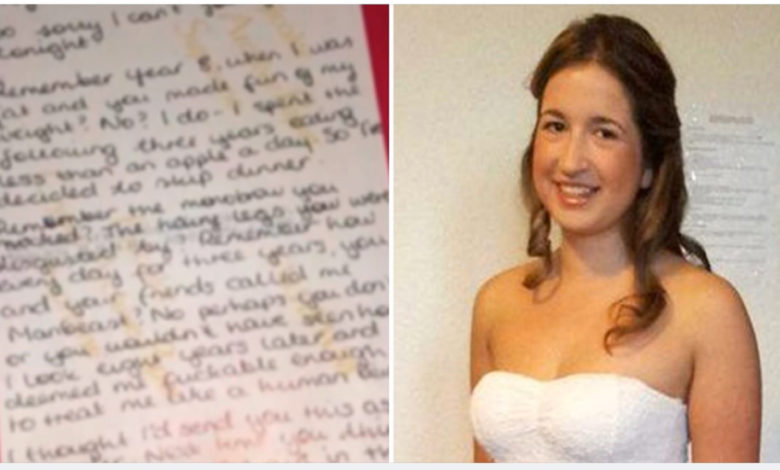 so sorry I can't
tonight
Remember year 8, when I was
fat and you made fun of my
weight? No? I do - I spent the
following three years eating
less than an apple a day. So I've
decided to skip dinner.
Remember the monobrow you
mocked? The hairy legs you were
disgusted by? Remember how
every day for three years, you
and your friends called me
Manbeast? No perhaps you don't
or you wouldn't have seen how
I look eight years later and
deemed me fuckable enough
to treat me like a human
I thought I'd send you this as
you
in the